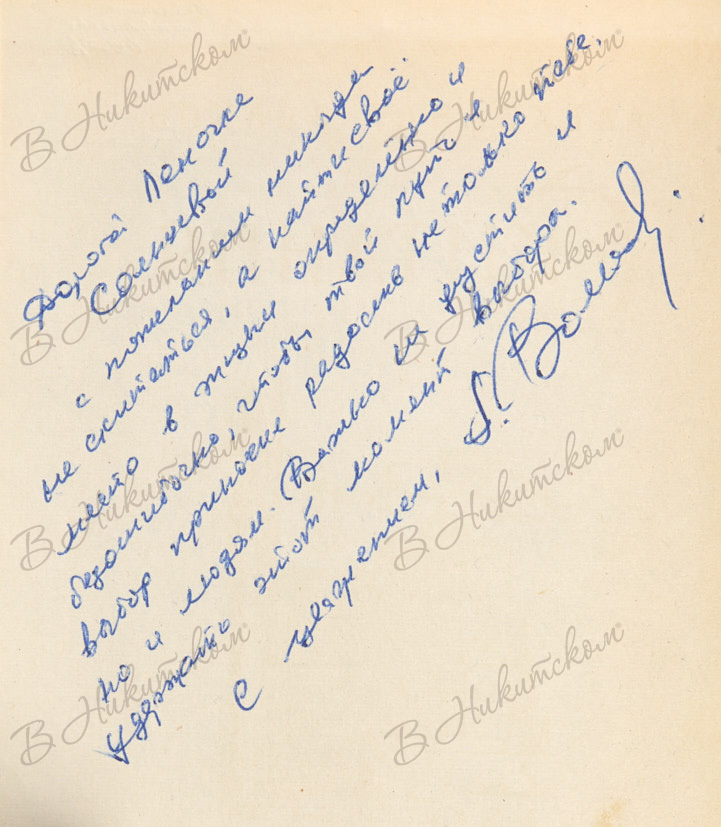 Дорогой Леночке
Солнцевой
с пожеланием никогда
не скитаться, а найти своё
место в жизни определённо и
безошибочно, чтобы твой путь и
выбор приносил радость не только тебе,
но и людям. Важно не упустить и
удержать этот момент выбора.
С уважением,
В Никитском
В Никитском
В Никитском
В Никитском
В Никитском
В Никитском
В Никитском
В Никитском